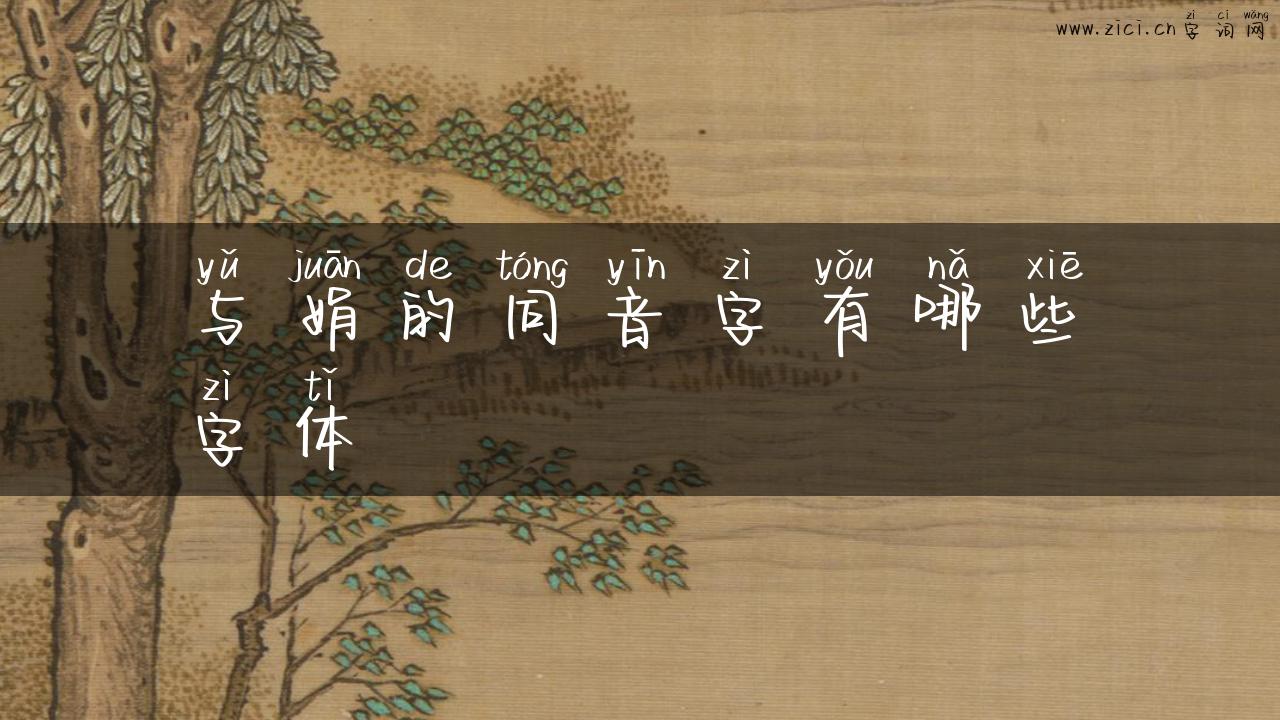 zì cí wǎng
www.zici.cn 字词网
yǔ juān de tóng yīn zì yǒu nǎ xiē
与娟的同音字有哪些
zì tǐ
字体